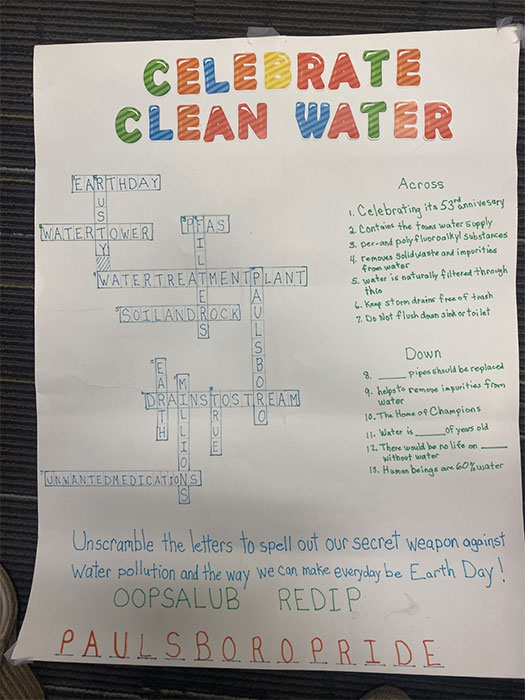 CELEBRATE
CLEAN WATER
EARTHDAY
RUSTY
PFAS
WATERTOWER
FILTERS
WATERTREATMENTPLANT
PAULSBORO
SOILANDROCK
EARTH
MILLIONS
TRUE
DRAINSTOSTREAM
UNWANTEDMEDICATIONS
Across
1. Celebrating its 53rd annivesary
2. Contains the towns water supply
3. per-and polyfluoroalkyl substances
4. removes solid waste and impurities
from water
5. water is naturally filtered through
this
6. Keep storm drains free of trash
7. Do Not flush down sink or toilet
Down
8. ____ pipes should be replaced
9. helps to remove impurities from
water
10. The Home of Champions
11. Water is ____ of years old
12. There would be no life on ____
without water
13. Human beings are 60% water
Unscramble the letters to spell out our secret weapon against
water pollution and the way we can make everyday be Earth Day!
OOPSALUB REDIP
PAULSBORO PRIDE